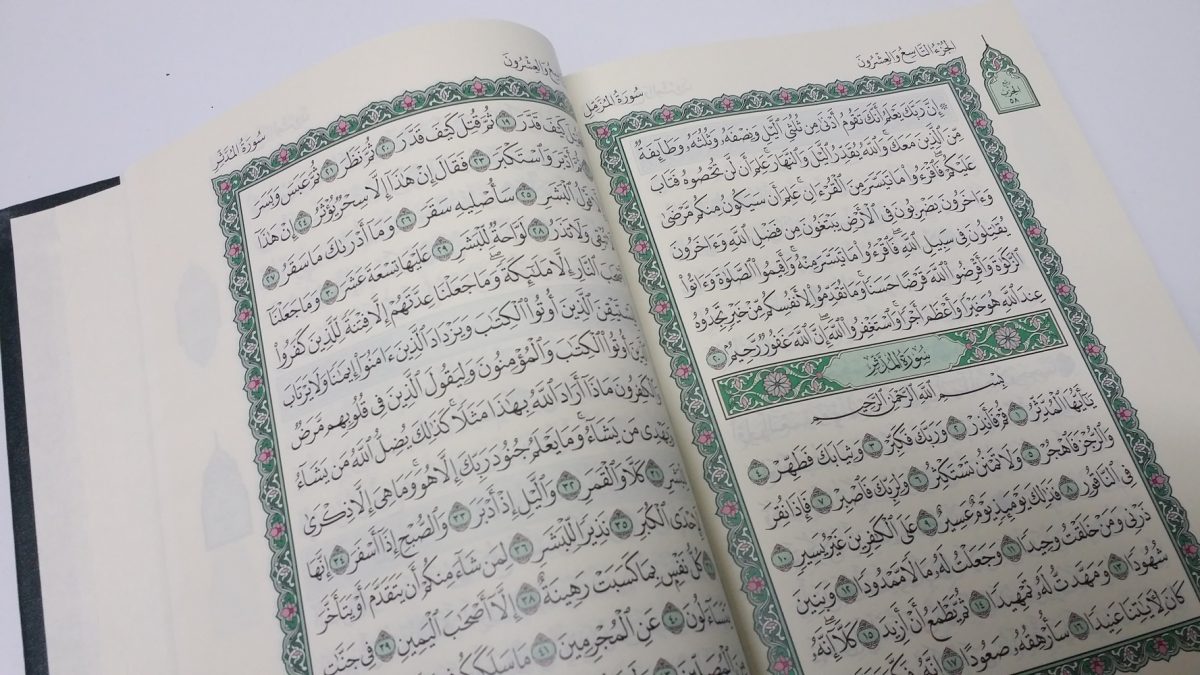 الجُزْءُ التَّاسِعُ وَالعِشْرُونَ
سُورَةُ المُزَّمِّل
الحِزْب ٥٨
۞ إِنَّ رَبَّكَ يَعْلَمُ أَنَّكَ تَقُومُ أَدْنَىٰ مِن ثُلُثَىِ ٱلَّيْلِ وَنِصْفَهُۥ وَثُلُثَهُۥ وَطَآئِفَةٌ
مِّنَ ٱلَّذِينَ مَعَكَ وَٱللَّهُ يُقَدِّرُ ٱلَّيْلَ وَٱلنَّهَارَ عَلِمَ أَن لَّن تُحْصُوهُ فَتَابَ
عَلَيْكُمْ فَٱقْرَءُوا۟ مَا تَيَسَّرَ مِنَ ٱلْقُرْءَانِ عَلِمَ أَن سَيَكُونُ مِنكُم مَّرْضَىٰ
وَءَاخَرُونَ يَضْرِبُونَ فِى ٱلْأَرْضِ يَبْتَغُونَ مِن فَضْلِ ٱللَّهِ وَءَاخَرُونَ
يُقَٰتِلُونَ فِى سَبِيلِ ٱللَّهِ فَٱقْرَءُوا۟ مَا تَيَسَّرَ مِنْهُ وَأَقِيمُوا۟ ٱلصَّلَوٰةَ وَءَاتُوا۟
ٱلزَّكَوٰةَ وَأَقْرِضُوا۟ ٱللَّهَ قَرْضًا حَسَنًا وَمَا تُقَدِّمُوا۟ لِأَنفُسِكُم مِّنْ خَيْرٍ تَجِدُوهُ
عِندَ ٱللَّهِ هُوَ خَيْرًا وَأَعْظَمَ أَجْرًا وَٱسْتَغْفِرُوا۟ ٱللَّهَ إِنَّ ٱللَّهَ غَفُورٌ رَّحِيمٌۢ ٢٠
سُورَةُ المُدَّثِّر
بِسْمِ ٱللَّهِ ٱلرَّحْمَٰنِ ٱلرَّحِيمِ
يَٰٓأَيُّهَا ٱلْمُدَّثِّرُ ١ قُمْ فَأَنذِرْ ٢ وَرَبَّكَ فَكَبِّرْ ٣ وَثِيَابَكَ فَطَهِّرْ ٤
وَٱلرُّجْزَ فَٱهْجُرْ ٥ وَلَا تَمْنُن تَسْتَكْثِرُ ٦ وَلِرَبِّكَ فَٱصْبِرْ ٧ فَإِذَا نُقِرَ
فِى ٱلنَّاقُورِ ٨ فَذَٰلِكَ يَوْمَئِذٍ يَوْمٌ عَسِيرٌ ٩ عَلَى ٱلْكَٰفِرِينَ غَيْرُ يَسِيرٍ ١٠
ذَرْنِى وَمَنْ خَلَقْتُ وَحِيدًا ١١ وَجَعَلْتُ لَهُۥ مَالًا مَّمْدُودًا ١٢ وَبَنِينَ
شُهُودًا ١٣ وَمَهَّدتُّ لَهُۥ تَمْهِيدًا ١٤ ثُمَّ يَطْمَعُ أَنْ أَزِيدَ ١٥ كَلَّآ إِنَّهُۥ
كَانَ لِأَيَٰتِنَا عَنِيدًا ١٦ سَأُرْهِقُهُۥ صَعُودًا ١٧ إِنَّهُۥ فَكَّرَ
وَالعِشْرُونَ
سُورَةُ المُدَّثِّر
كَيْفَ قَدَّرَ ١٩ ثُمَّ قُتِلَ كَيْفَ قَدَّرَ ٢٠ ثُمَّ نَظَرَ ٢١ ثُمَّ عَبَسَ وَبَسَرَ
أَدْبَرَ وَٱسْتَكْبَرَ ٢٣ فَقَالَ إِنْ هَٰذَآ إِلَّا سِحْرٌ يُؤْثَرُ ٢٤ إِنْ هَٰذَآ
قَوْلُ ٱلْبَشَرِ ٢٥ سَأُصْلِيهِ سَقَرَ ٢٦ وَمَآ أَدْرَىٰكَ مَا سَقَرُ ٢٧
وَلَا تَذَرُ ٢٨ لَوَّاحَةٌ لِّلْبَشَرِ ٢٩ عَلَيْهَا تِسْعَةَ عَشَرَ ٣٠ وَمَا جَعَلْنَآ
ٱلنَّارِ إِلَّا مَلَٰٓئِكَةً وَمَا جَعَلْنَا عِدَّتَهُمْ إِلَّا فِتْنَةً لِّلَّذِينَ كَفَرُوا۟
ٱلَّذِينَ أُوتُوا۟ ٱلْكِتَٰبَ وَيَزْدَادَ ٱلَّذِينَ ءَامَنُوٓا۟ إِيمَٰنًا وَلَا يَرْتَابَ
أُوتُوا۟ ٱلْكِتَٰبَ وَٱلْمُؤْمِنُونَ وَلِيَقُولَ ٱلَّذِينَ فِى قُلُوبِهِم مَّرَضٌ
وَٱلْكَٰفِرُونَ مَاذَآ أَرَادَ ٱللَّهُ بِهَٰذَا مَثَلًا كَذَٰلِكَ يُضِلُّ ٱللَّهُ مَن يَشَآءُ
وَيَهْدِى مَن يَشَآءُ وَمَا يَعْلَمُ جُنُودَ رَبِّكَ إِلَّا هُوَ وَمَا هِىَ إِلَّا ذِكْرَىٰ
٣١ كَلَّا وَٱلْقَمَرِ ٣٢ وَٱلَّيْلِ إِذْ أَدْبَرَ ٣٣ وَٱلصُّبْحِ إِذَآ أَسْفَرَ ٣٤ إِنَّهَا
لَإِحْدَى ٱلْكُبَرِ ٣٥ نَذِيرًا لِّلْبَشَرِ ٣٦ لِمَن شَآءَ مِنكُمْ أَن يَتَقَدَّمَ أَوْ يَتَأَخَّرَ
كُلُّ نَفْسٍۭ بِمَا كَسَبَتْ رَهِينَةٌ ٣٨ إِلَّآ أَصْحَٰبَ ٱلْيَمِينِ ٣٩ فِى جَنَّٰتٍ
يَتَسَآءَلُونَ ٤٠ عَنِ ٱلْمُجْرِمِينَ ٤١ مَا سَلَكَكُمْ